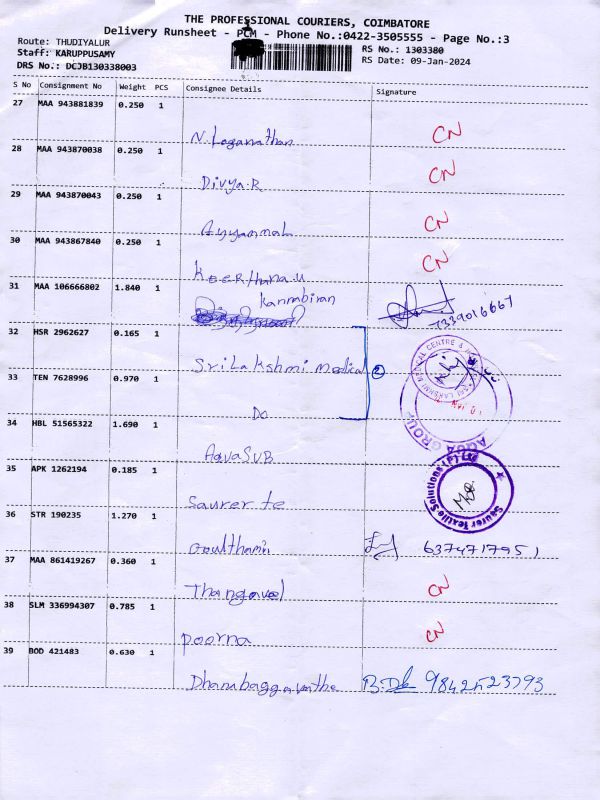 THE PROFESSIONAL COURIERS, COIMBATORE
Delivery Runsheet - PCM - Phone No.:0422-3505555 - Page No.:3
Route: THUDIYALUR
RS No.: 1303380
Staff: KARUPPUSAMY
RS Date: 09-Jan-2024
DRS No.: DCJB130338003
S No Consignment No Weight PCS Consignee Details Signature
27 MAA 943881839 0.250 1
N. Loganathan CN
28 MAA 943870038 0.250 1
Divya.R CN
29 MAA 943870043 0.250 1
Ayyammal CN
30 MAA 943867840 0.250 1
Keerthana.U CN
31 MAA 106666802 1.840 1
Kannabiran 7339016667
32 HSR 2962627 0.165 1
Sri Lakshmi Medical 2
33 TEN 7628996 0.970 1
Do
34 HBL 51565322 1.690 1
AQUA GROUP
AquaSUB
35 APK 1262194 0.185 1
Saurer Textile Solutions (P) Ltd
Saurer te
36 STR 190235 1.270 1
Goulthamin 6374717951
37 MAA 861419267 0.360 1
Thangavel CN
38 SLM 336994307 0.785 1
Poorna CN
39 BOD 421483 0.630 1
9842523793